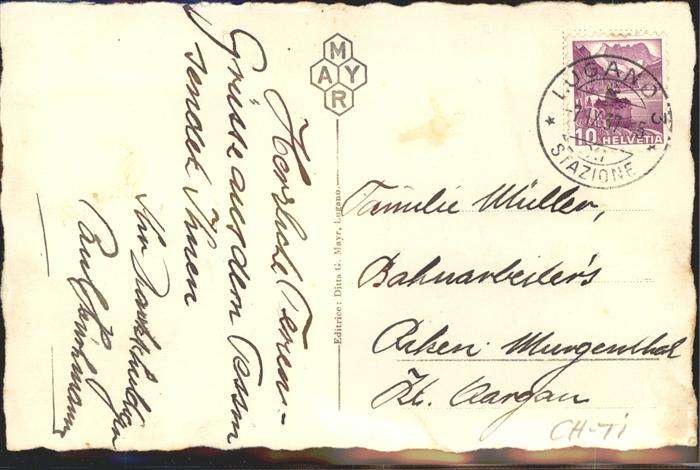 Herzliche Ferien-
Grüsse aus dem Tessin
sendet Ihnen
Ihr
Paul
MAYR
Editrice: Ditta G. Mayr, Lugano.
LUGANO 3
STAZIONE
10 HELVETIA
Familie Müller,
Bahnarbeiter's
Murgenthal
Kt. Aargau
CH-TI